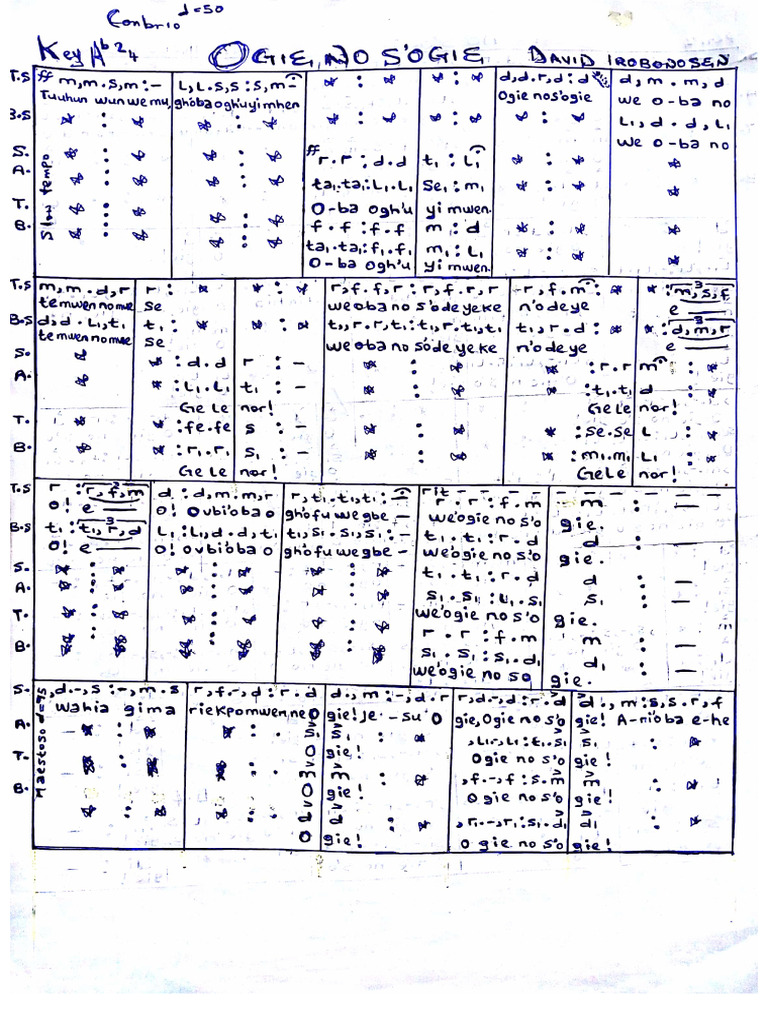 Conbrio d=50
Key Ab 24 OGIE NO S'OGIE DAVID IROBONOSEN
T.S ff m,m.s,m:- | L,L.s,s:s,m- | * : * | * : * | d,d.r,d:d | d,m.m,d
Tuuhun wunwemu, ghobaoghuyimhen Ogie nos'ogie we o-ba no
B.S * : * | * : * | * : * | * : * | * : * | L₁,d.d,L₁
we o-ba no
Slow tempo
S. * : * | * : * | ff r.r:d.d | t₁:L₁ | * : * | *
A. * : * | * : * | ta₁.ta₁:L₁.L₁ | se₁:m₁ | * : * | *
O-ba ogh'u yi mwen.
T. * : * | * : * | f.f:f.f | m:d | * : * | *
B. * : * | * : * | ta₁.ta₁:f₁.f₁ | m₁:L₁ | * : * | *
O-ba ogh'u yi mwen.
T.S m,m.d,r | r: * | * : * | r,f,f.r:r,f.r,r | r,f.m: * | * :m,s,f
temwen nomwe se weoba no s'ode yeke n'odeye e
B.S d,d.L₁,t₁ | t₁: * | * : * | t₁,r.r,t₁:t₁,r.t₁,t₁ | t₁,r.d: * | * :d,m,r
temwen nomwe se weoba no s'ode ye ke n'odeye e
S. * | * :d.d | r:- | * : * | * :r.r | m: *
A. * | * :L₁.L₁ | t₁:- | * : * | * :t₁.t₁ | d: *
Ge le nor! Ge Le nor!
T. * | * :fe.fe | s:- | * : * | * :se.se | L: *
B. * | * :r₁.r₁ | s₁:- | * : * | * :m₁.m₁ | L₁: *
Ge Le nor! Ge Le nor!
T.S r:r,f,m | d:d,m.m,r | r,t₁.t₁,t₁:- | rit r.r:f.m | m:-
o! e o! ovbi'oba o gho'fu we gbe - we'ogie no s'o gie.
B.S t₁:t₁,r,d | L₁:L₁,d.d,t₁ | t₁,s₁.s₁,s₁:- | t₁.t₁:r.d | d:-
o! e o! ovbi'oba o gho'fu we gbe - we'ogie no s'o gie.
S. * : * | * : * | * : * | t₁.t₁:r.d | d:-
A. * : * | * : * | * : * | s₁.s₁:L₁.s₁ | s₁:-
we'ogie no s'o gie.
T. * : * | * : * | * : * | r.r:f.m | m:-
B. * : * | * : * | * : * | s₁.s₁:s₁.d₁ | d₁:-
we'ogie no so gie.
Maestoso d=75
S. ,d.-,s:-,m.s | r,f.-,d:r.d | d.,m:-,d.r | r,d.-,d:r.d | d.,m:s,s.r,f
wahia gima riekpomwen ne O gie! Je - su 'O gie, Ogie no s'o gie! A-ni'oba e-he
A. * : * | * : s₁ | s₁: * | ,L₁.-,L₁:t₁.s₁ | s₁: *
O gie! Ogie no s'o gie!
T. * : * | * : m | m: * | ,f.-,f:s.m | m: *
O gie! O gie no s'o gie!
B. * : * | * : d | d: * | ,r₁.-,r₁:s₁.d₁ | d₁: *
O gie! O gie no s'o gie!